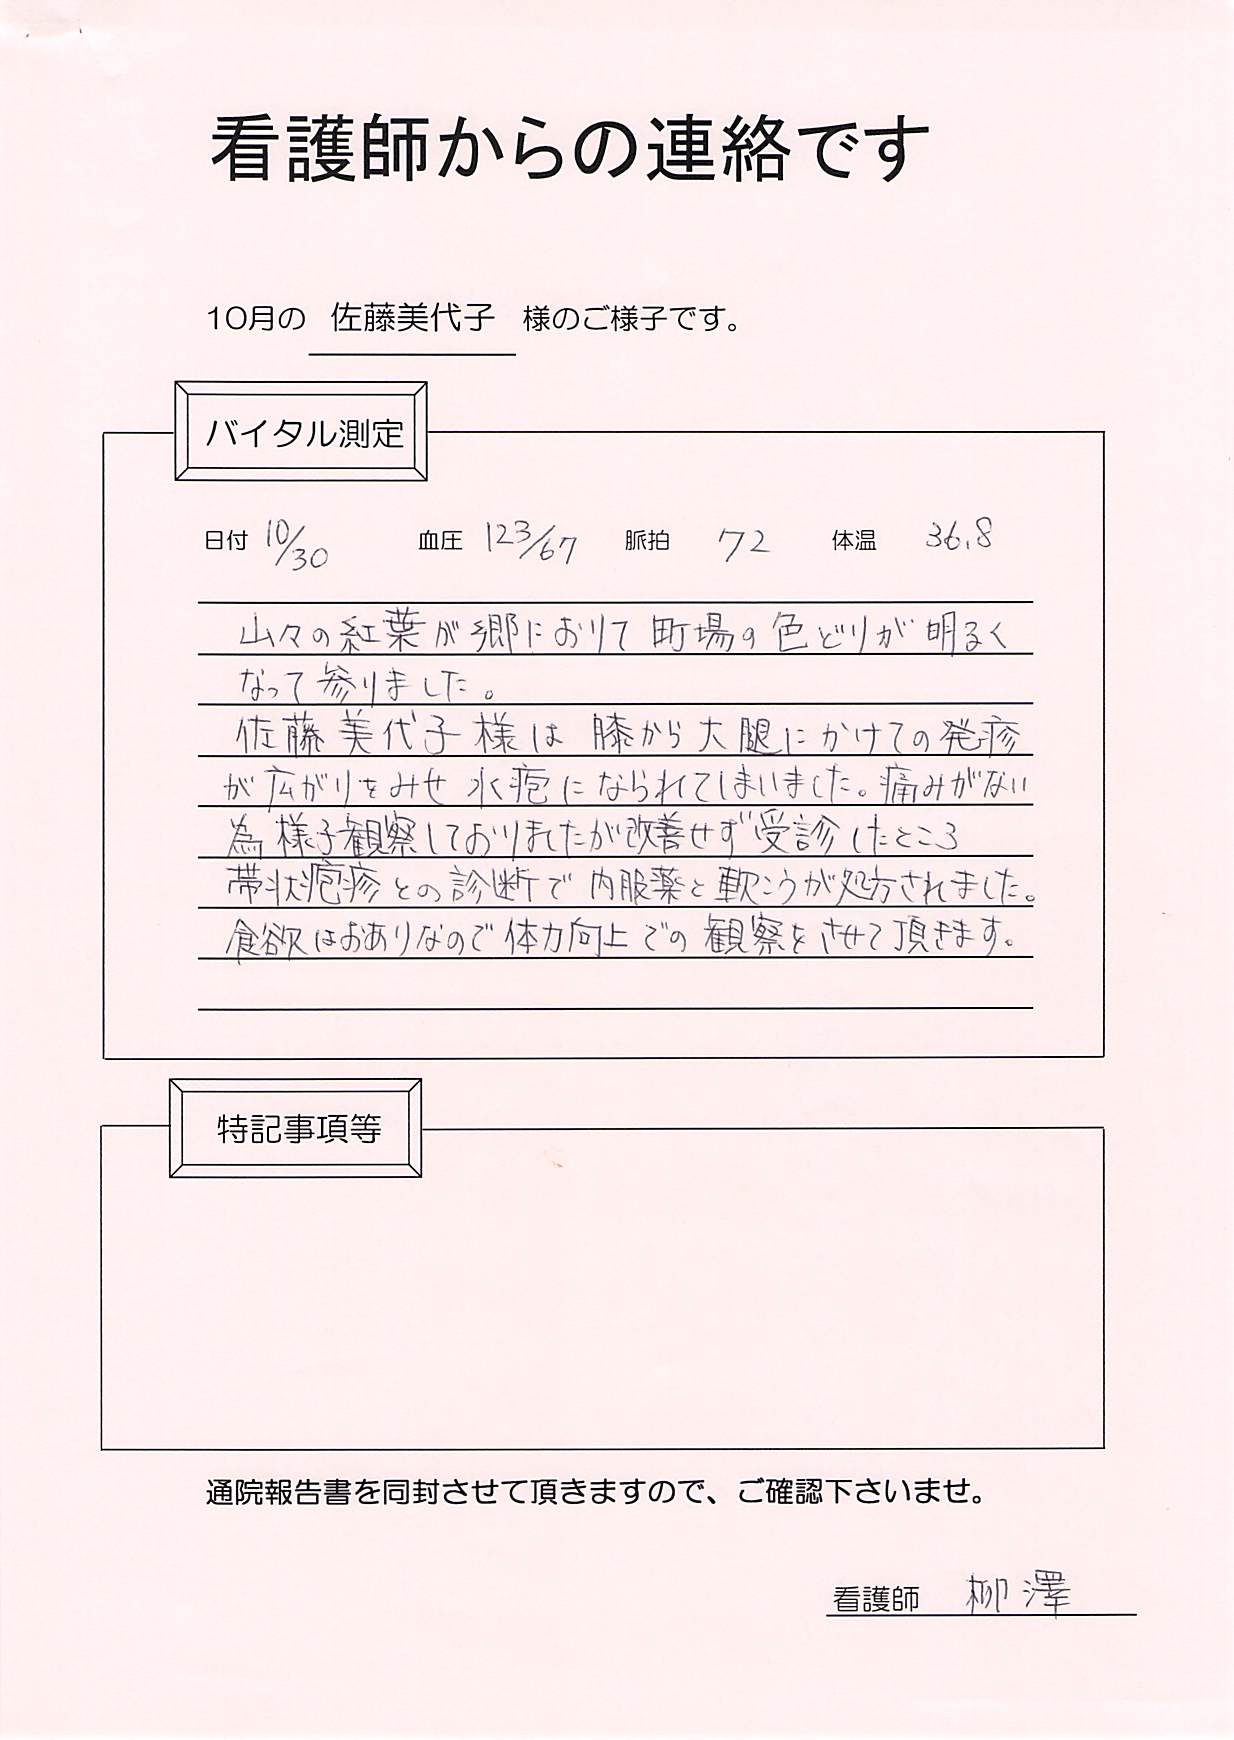 看護師からの連絡です
10月の 佐藤美代子 様のご様子です。
バイタル測定
日付 10/30 血圧 123/67 脈拍 72 体温 36.8
山々の紅葉が郷におりて町場の色どりが明るく
なって参りました。
佐藤美代子様は膝から大腿にかけての発疹
が広がりをみせ水疱になられてしまいました。痛みがない
為様子観察しておりましたが改善せず受診したところ
帯状疱疹との診断で内服薬と軟こうが処方されました。
食欲はおありなので体力向上での観察をさせて頂きます。
特記事項等
通院報告書を同封させて頂きますので、ご確認下さいませ。
看護師 柳澤